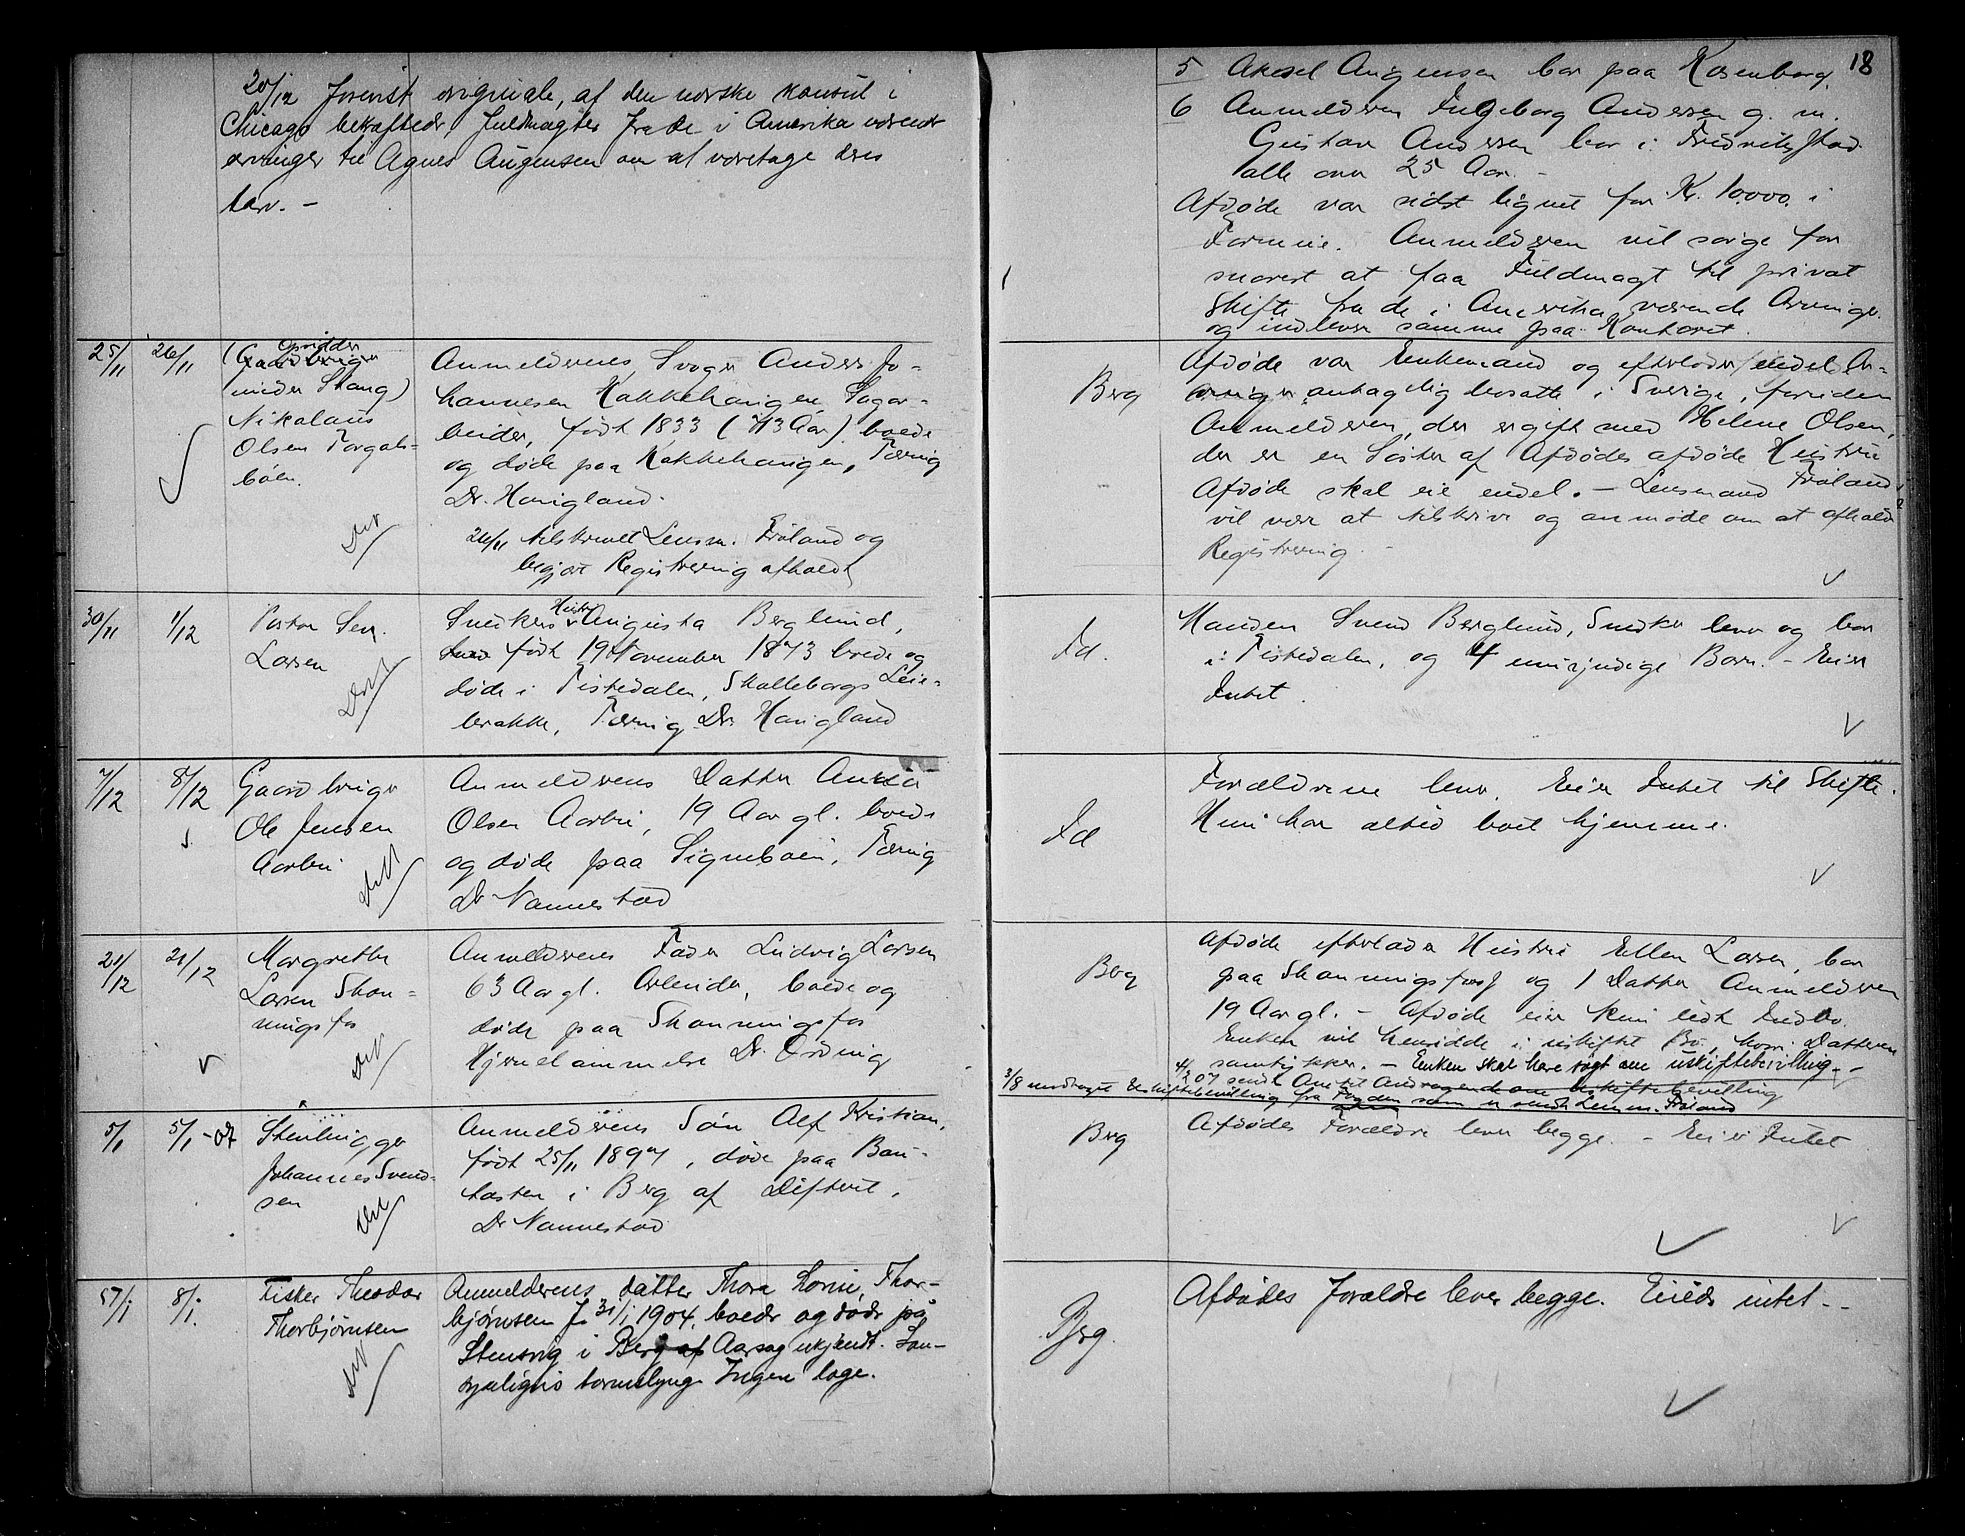 20/12 Forevist originale, af den norske konsul i
Chicago bekræftede, Fuldmagter fra de i Amerika værende
arvinger til Agnes Augensen om at varetage deres
tarv. -
25/11
26/11
(Opsidder
Gaardbruger
under Stang)
Nikolaus
Olsen Torgals-
böen.
Anmelderens Svoger Anders Jo-
hannesen Hakkehaugen, Sagar-
beider, født 1833 (73 Aar) boede
og døde paa Hakkehaugen, Tæring
Dr. Hougland.
26/11 tilskrevet Lensm. Fröland og
begjært Registrering afholdt
30/11
1/12
Pastor Sev.
Larsen
Snedkers Hustru Augusta Berglund,
født 19 November 1873 boede og
døde i Tistedalen, Skalleborgs Leie-
brakke, Tæring Dr. Hougland
7/12
8/12
Gaardbruger
Ole Jensen
Aarbu
Anmelderens Datter Anna
Olsen Aarbu, 19 Aar gl. boede
og døde paa Signebøen, Tæring
Dr Nannestad
21/12
21/12
Margrethe
Larsen Skon-
ningsfos
Anmelderens Fader Ludvig Larsen
63 Aar gl. Arbeider, boede og
døde paa Skonningsfos
Hjernelammelse Dr. Ording
5/1
5/1-07
Stenhugger
Johannes Svend-
sen
Anmelderens Søn Alf Kristian,
født 25/11 1897, døde paa Bau-
tasten i Berg af Difterit,
Dr Nannestad
57/1
8/1.
Fisker Theodor
Thorbjørnsen
Anmelderens datter Thora Lovise Thor-
bjørnsen F. 31/1 1904, boede og døde på
Stensvig i Berg af Aarsag ukjendt. San-
synligvis tarmslyng Ingen læge.
18
5 Aksel Augensen bor paa Rosenborg.
6 Anmelderen Ingeborg Andersen g. m.
Gustav Andersen bor i Fredrikstad
alle over 25 Aar. -
Afdøde var sidst lignet for Kr. 10,000. i
Formue. Anmelderen vil sørge for
snarest at faa Fuldmagt til privat
Skifte fra de i Amerika værende Arvinger
og indlevere samme paa Kontoret.
Berg
Afdøde var Enkemand og efterlader endel Ar-
vinger antagelig bosatte i Sverige, foruden
Anmelderen, der er gift med Helene Olsen,
der er en Søster af Afdødes afdøde Hustru
Afdøde skal eie endel. - Lensmand Fröland
vil være at tilskrive og anmode om at afholde
Registrering. -
Id.
Manden Svend Berglund, Snedker lever og bor
i Tistedalen, og 4 umyndige Børn. - Eier
Intet.
Id
Forældrene lever. Eier Intet til Skifte.
Hun har altid boet hjemme.
Berg
Afdøde efterlader Hustru Ellen Larsen, bor
paa Skonningsfos og 1 Datter Anmelderen
19 Aar gl. - Afdøde eier kun lidt Indbo.
Enken vil hensidde i uskiftet Bo, hvori Datteren
samtykker. - Enken skal have søgt om uskiftebevilling. -
4/2 07 sendt Amtet Andragende om Uskiftebevilling
3/8 modtaget Uskiftebevilling fra Fogden som er sendt Lensm. Fröland
Berg
Afdødes Forældre lever begge. - Eier Intet
Berg.
Afdødes Forældre lever begge. Eiede intet. -